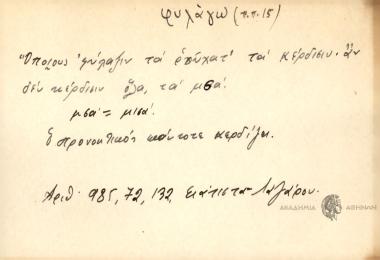 φυλάγω (π.π. 15)
Ὅποιους φύλαξιν τὰ ροῦχατ' τὰ κέρδισιν· ἂν
δὲν κέρδισιν ὅλα, τὰ μ'σά!
μσά = μισά!
Ὁ προνοητικός πάντοτε κερδίζει.
Ἀριθ. 985, 72, 132, Σιάτιστα Λαζάρου.
ΑΚΑΔΗΜΙΑ ΑΘΗΝΩΝ